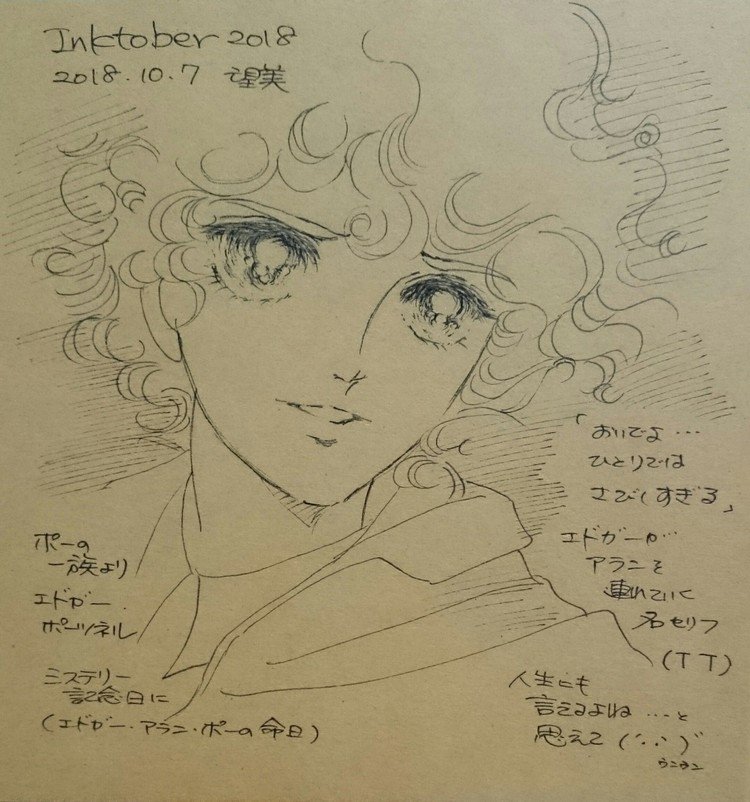 Inktober 2018
2018.10.7 望美
「おいでよ…
ひとりでは
さびしすぎる」
エドガーが
アランを
連れていく
名セリフ
(TT)
ポーの
一族より
エドガー
ポーツネル
ミステリー
記念日に
(エドガー・アラン・ポーの命日)
人生にも
言えるよね…と
思えて
ウンウン